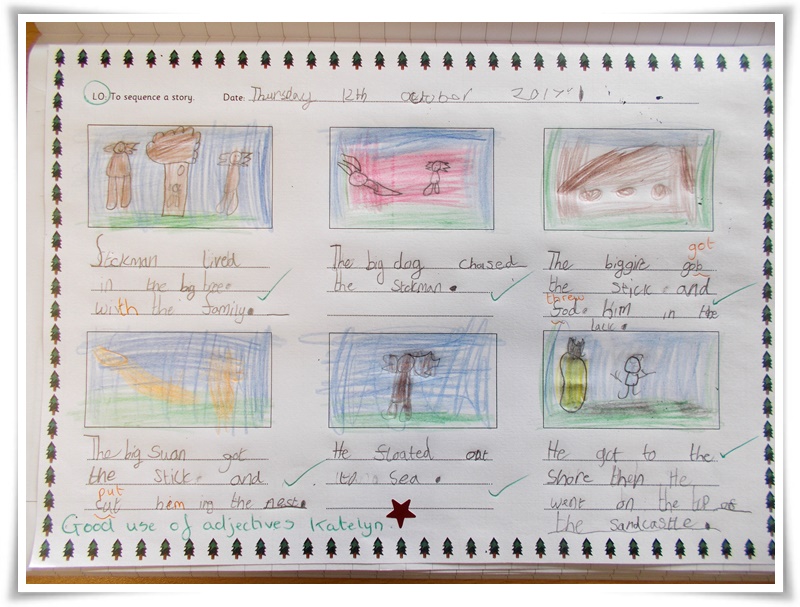 LO: To sequence a story. Date: Thursday 12th october 2017
Stickman lived
in the big tree
with the family.
The big dog chased
the Stokman.
got
The biggire gob
the Stick and
threw
him in the
lack.
The big Swan got
the Stick and
put
hem ing the nest.
He floated out
Sea.
He got to the
Shore then He
want on the top of
the Sandcastle.
Good use of adjectives Katelyn.